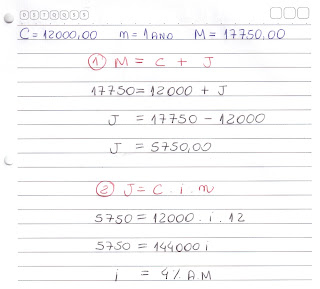 C = 12000,00 m = 1 ANO M = 17750,00
① M = C + J
17750 = 12000 + J
J = 17750 - 12000
J = 5750,00
② J = C . i . m
5750 = 12000 . i . 12
5750 = 144000 i
i = 4% A.M